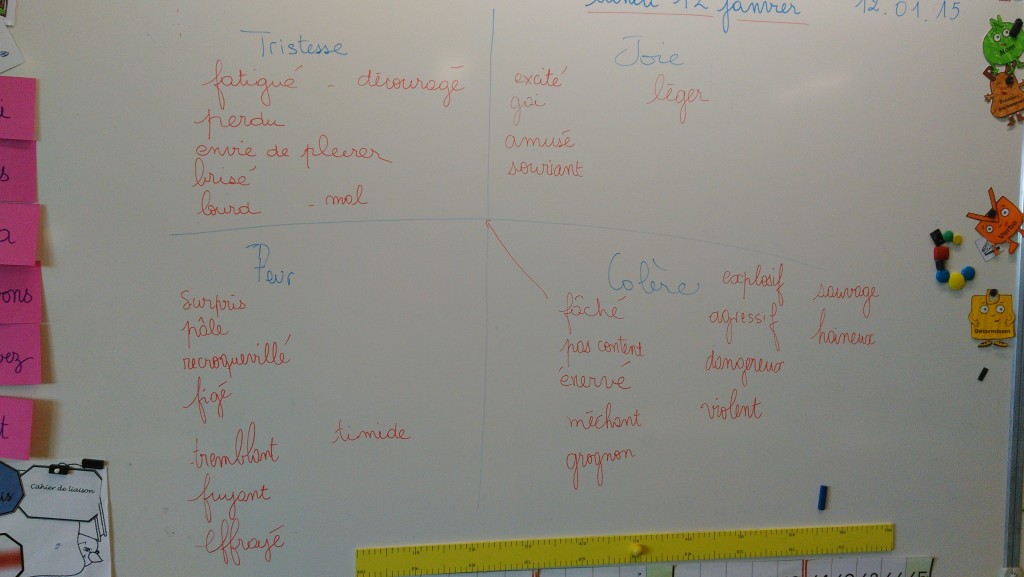 lundi 12 janvier 12.01.15
Tristesse
fatigué - découragé
perdu
envie de pleurer
brisé
lourd - mal
Joie
excité
gai
léger
amusé
souriant
Peur
Surpris
pâle
recroquevillé
figé
tremblant
timide
fuyant
effrayé
Colère
fâché
pas content
énervé
méchant
grognon
explosif
agressif
dangereux
violent
sauvage
haineux
i
s
a
ons
vez
t
Cahier de liaison
Verbe
Déterminant